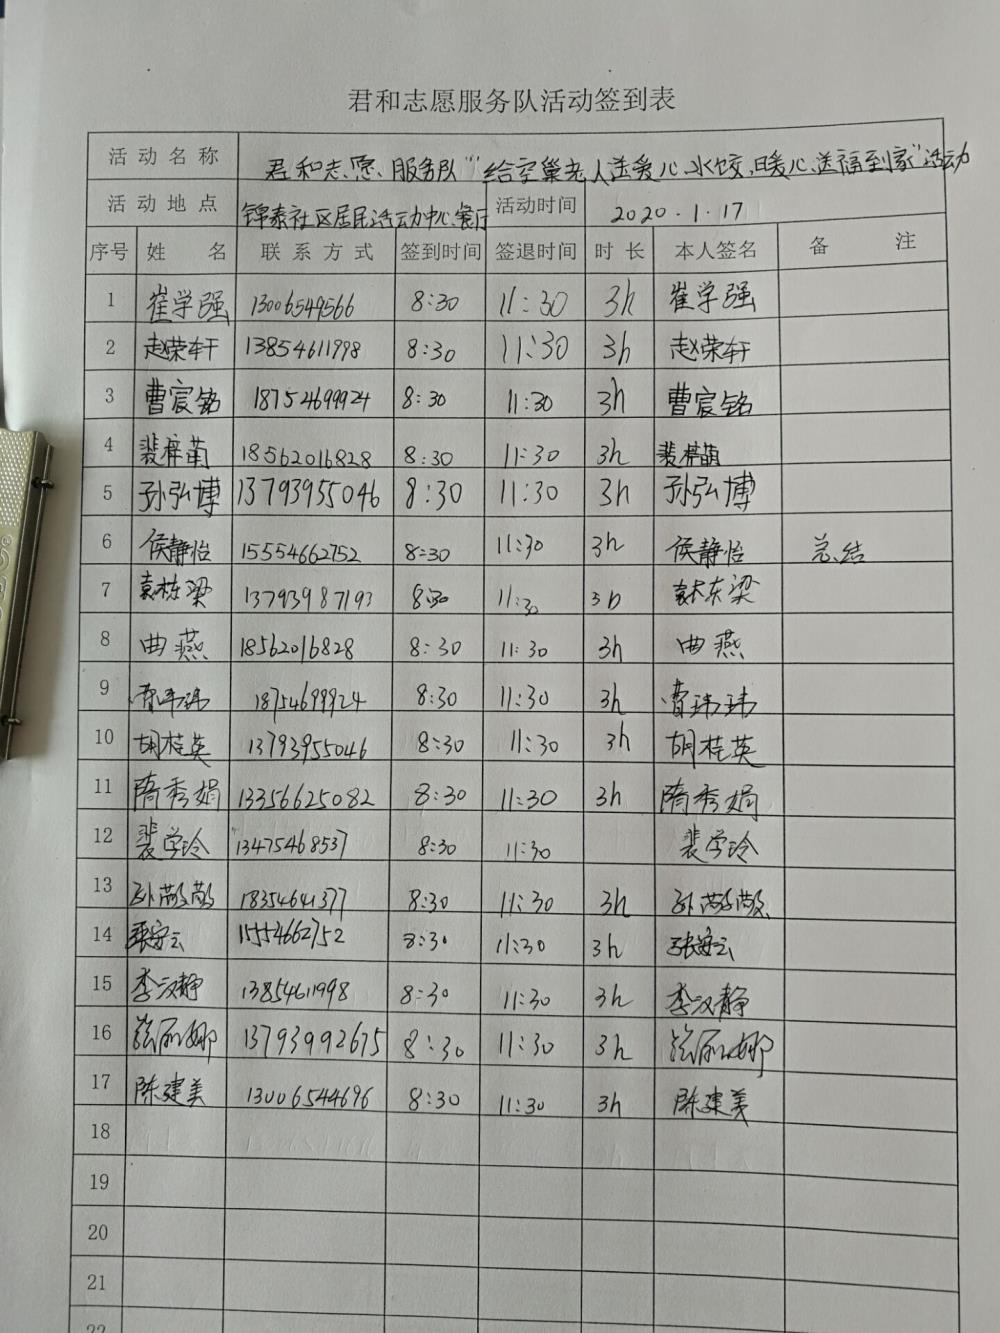 君和志愿服务队活动签到表
活动名称 君和志愿服务队"给空巢老人送爱心水饺,暖心送福到家"活动
活动地点 锦泰社区居民活动中心餐厅 活动时间 2020.1.17
序号 姓名 联系方式 签到时间 签退时间 时长 本人签名 备注
1 崔学强 13006549566 8:30 11:30 3h 崔学强
2 赵荣轩 13854611998 8:30 11:30 3h 赵荣轩
3 曹宸铭 18754699924 8:30 11:30 3h 曹宸铭
4 裴梓萌 18562016828 8:30 11:30 3h 裴梓萌
5 孙弘博 13793955046 8:30 11:30 3h 孙弘博
6 侯静怡 15554662752 8:30 11:30 3h 侯静怡 总结
7 袁栋梁 13793987193 8:30 11:30 3h 袁栋梁
8 曲燕 18562016828 8:30 11:30 3h 曲燕
9 曹玮玮 18754699924 8:30 11:30 3h 曹玮玮
10 胡桂英 13793955046 8:30 11:30 3h 胡桂英
11 隋秀娟 13356625082 8:30 11:30 3h 隋秀娟
12 裴学玲 13475468537 8:30 11:30 裴学玲
13 孙 18354641377 8:30 11:30 3h 孙
14 张安云 15554662752 8:30 11:30 3h 张安云
15 李汉静 13854611998 8:30 11:30 3h 李汉静
16 丽娜 13793992675 8:30 11:30 3h 丽娜
17 陈建美 13006544696 8:30 11:30 3h 陈建美
18
19
20
21
22